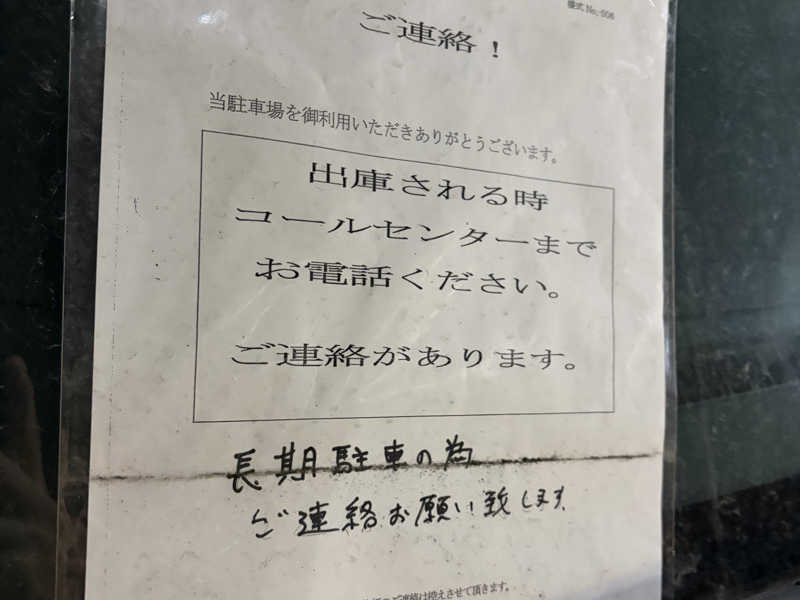 様式 No.-006
ご連絡！
当駐車場を御利用いただきありがとうございます。
出庫される時
コールセンターまで
お電話ください。
ご連絡があります。
長期駐車の為
ご連絡お願い致します
ご連絡は控えさせて頂きます。